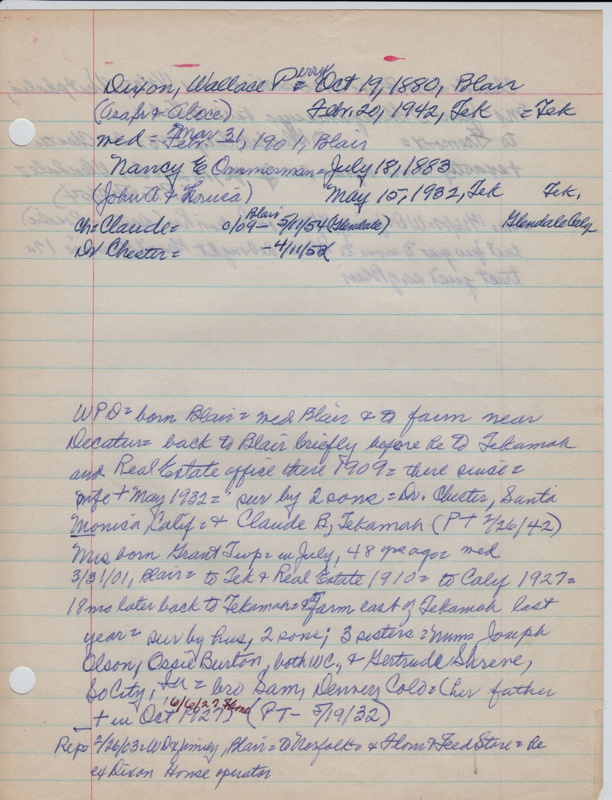 Dixon, Wallace Perry = Oct 19, 1880, Blair
(Asaph & Alice) Feb. 20, 1942, Tek = Tek
med = Feb. Mar 31, 1901, Blair
Nancy E Ommerman = July 18, 1883
(John A & Louisa) May 15, 1932, Tek Tek.
Ch = Claude = c/09 - Blair 5/11/54 (Glendale) Glendale Calif
Dr Chester = - 4/11/52
WPD = born Blair = med Blair & to farm near
Decatur = back to Blair briefly before he to Tekamah
and Real Estate office there 1909 = there since =
wife + May 1932 = sur by 2 sons = Dr. Chester, Santa
Monica, Calif = & Claude B, Tekamah (PT 2/26/42)
Mrs born Grant Twp = in July, 48 yrs ago = med
3/31/01, Blair = to Tek & Real Estate 1910 = to Calif 1927 =
18 mo later back to Tekamah = & farm east of Tekamah last
year = sur by hus, 2 sons; 3 sisters = Mmes Joseph
Olson, Ossie Burton, both WC, & Gertrude Shreve,
So City, = bro Sam, Denver, Colo = (her father
+ in Oct 1927) 6/6/27 (PT - 5/19/32)
Rep 2/26/03 = W Dx, Blair = to Norfolk & Flour & Feed Store = he
ex Dixon House operator